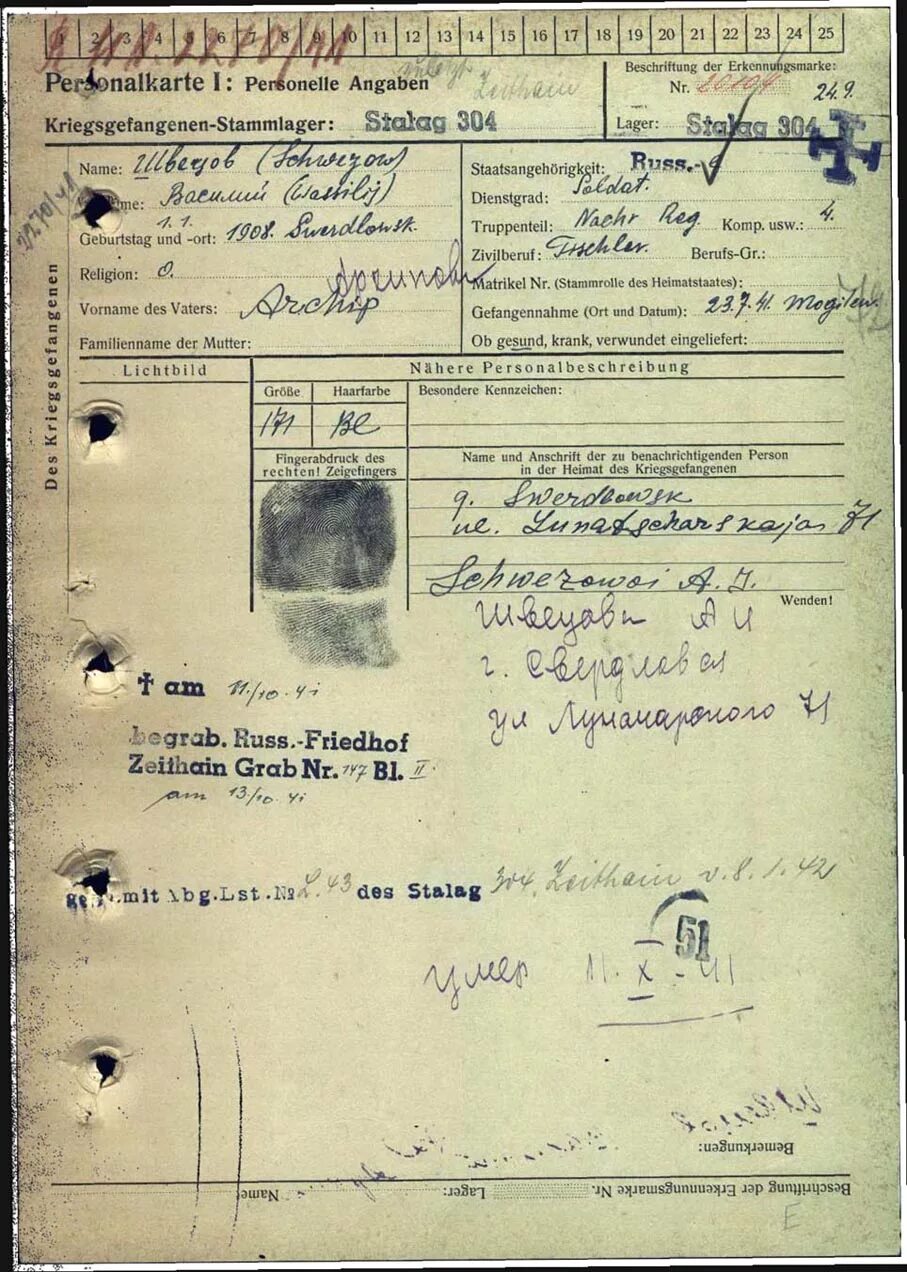 1 2 3 4 5 6 7 8 9 10 11 12 13 14 15 16 17 18 19 20 21 22 23 24 25
Personalkarte I: Personelle Angaben
Zeithain
Kriegsgefangenen-Stammlager: Stalag 304
Beschriftung der Erkennungsmarke:
Nr.
24.9.
Lager: Stalag 304
Des Kriegsgefangenen
Name: Швецов (Schwezow)
Василий (Wassilij)
Geburtstag und -ort: 1.1. 1908. Swerdlowsk.
Religion: O.
Архипович
Vorname des Vaters: Archip
Familienname der Mutter:
Staatsangehörigkeit: Russ.
Dienstgrad: Soldat.
Truppenteil: Nachr Reg Komp. usw.: 4.
Zivilberuf: Tischler. Berufs-Gr.:
Matrikel Nr. (Stammrolle des Heimatstaates):
Gefangennahme (Ort und Datum): 23.7.41. Mogilew.
Ob gesund, krank, verwundet eingeliefert:
Lichtbild
Nähere Personalbeschreibung
Größe Haarfarbe Besondere Kennzeichen:
171 Bl
Fingerabdruck des
rechten! Zeigefingers
Name und Anschrift der zu benachrichtigenden Person
in der Heimat des Kriegsgefangenen
g. Swerdlowsk
ul. Lunatscharskaja 71
Schwezowoi A. I.
Wenden!
Швецови А И
г. Свердловск
ул Луначарского 71
✝ am 11/10. 41
begrab. Russ.-Friedhof
Zeithain Grab Nr. 147 Bl. II
am 13/10. 41
mit Abg.Lst.№ L.43 des Stalag 304, Zeithain v. 8.1.42
51
умер 11. X - 41
Bemerkungen:
Beschriftung der Erkennungsmarke Nr. Lager: Name
E